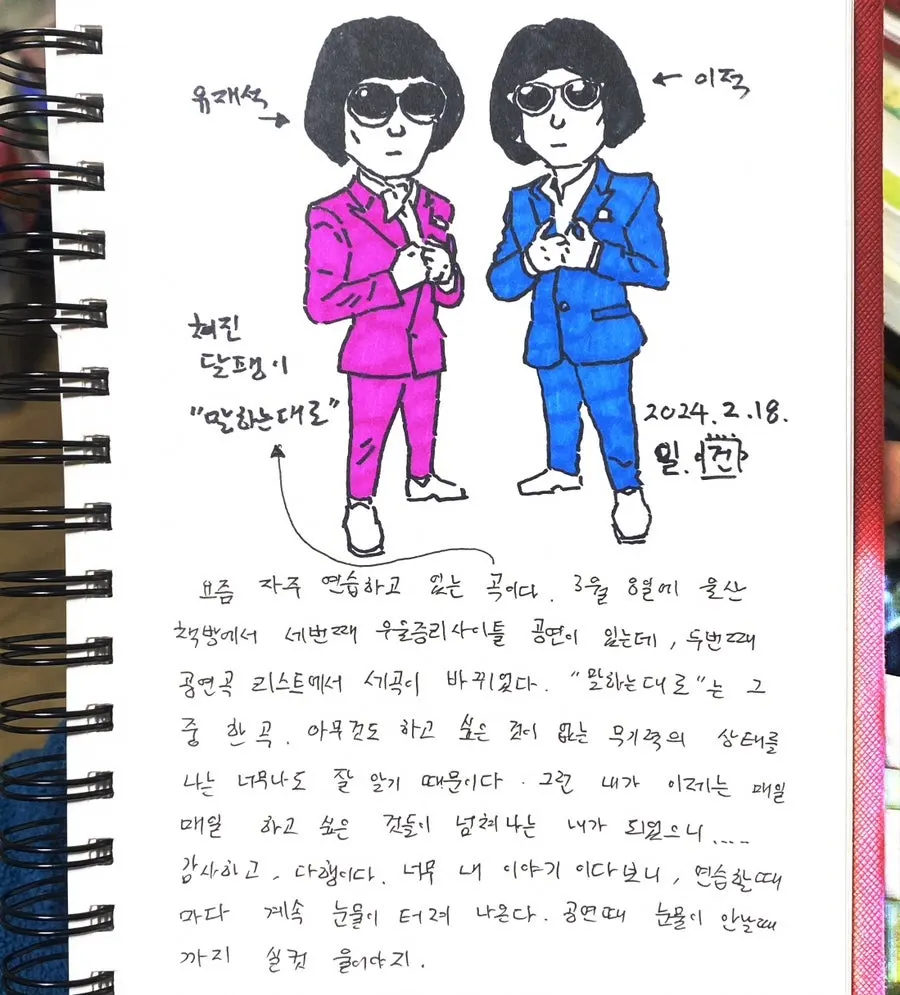 유재석
이적
처진
달팽이
"말하는대로"
2024.2.18.
일. 건
요즘 자주 연습하고 있는 곡이다. 3월 8일에 울산
책방에서 세번째 우울증리사이틀 공연이 있는데, 두번째
공연곡 리스트에서 세곡이 바뀌었다. "말하는대로"는 그
중 한곡. 아무것도 하고 싶은 것이 없는 무기력의 상태를
나는 너무나도 잘 알기 때문이다. 그런 내가 이제는 매일
매일 하고 싶은 것들이 넘쳐나는 내가 되었으니....
감사하고, 다행이다. 너무 내 이야기 이다보니, 연습할때
마다 계속 눈물이 터져 나온다. 공연때 눈물이 안날때
까지 실컷 울어야지.